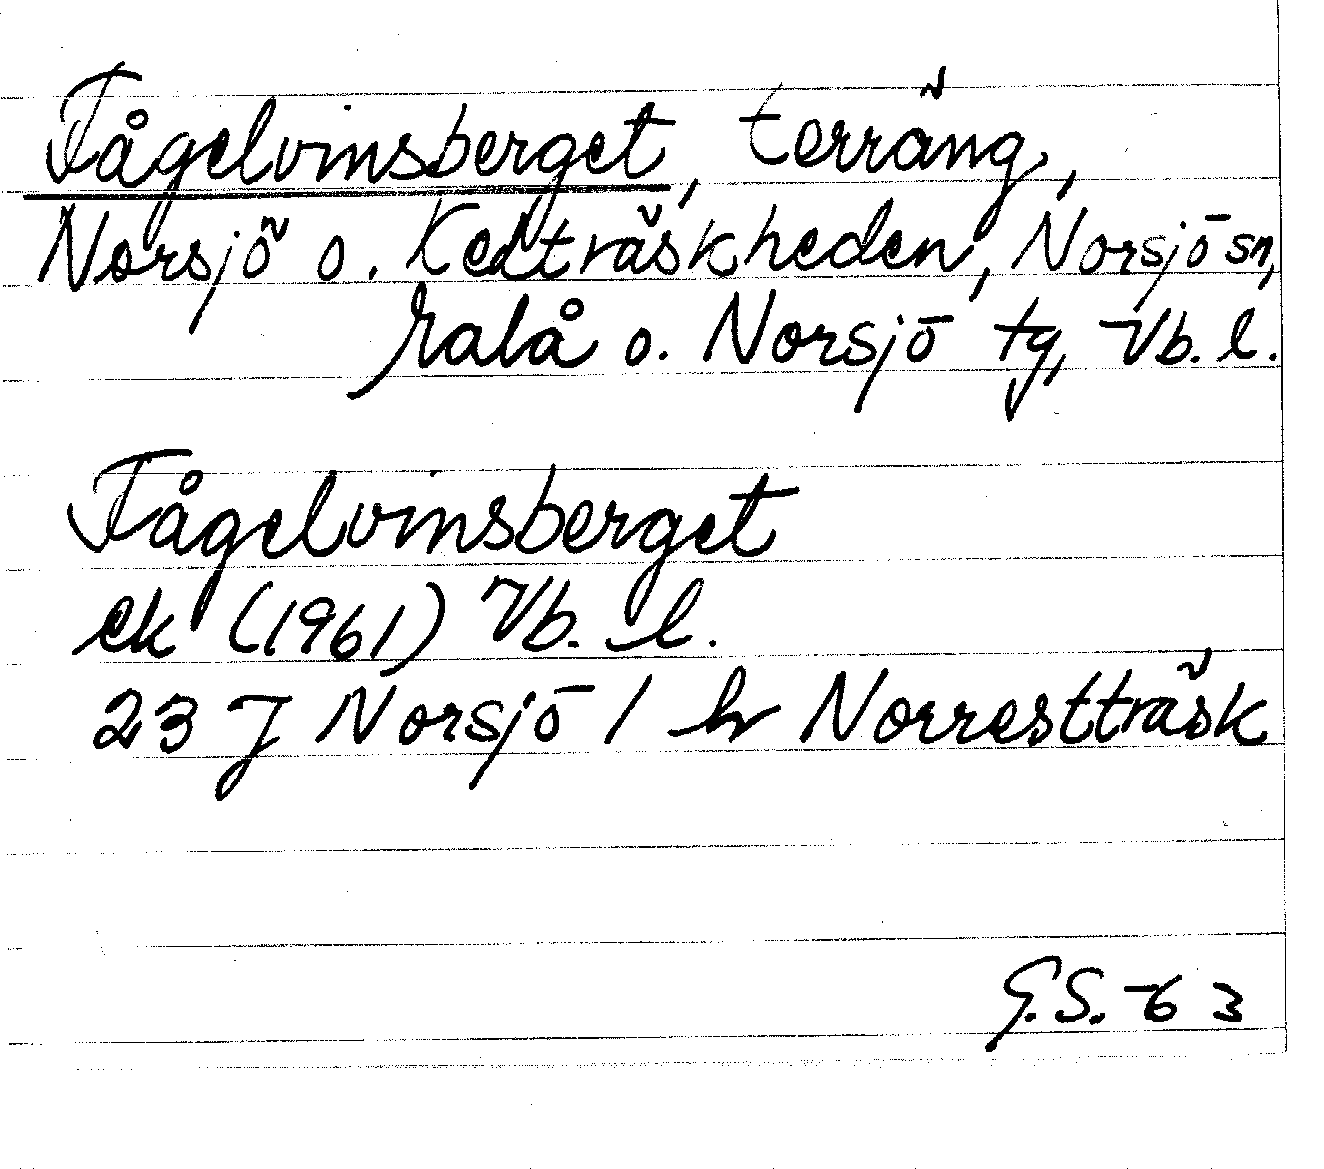 Fågelvinsberget, terräng,
Norsjö o. Kedträskheden, Norsjö sn,
Malå o. Norsjö tg, Vb. l.
Fågelvinsberget
ek (1961) Vb. l.
23 J Norsjö / hr Norrestträsk
G.S. -63